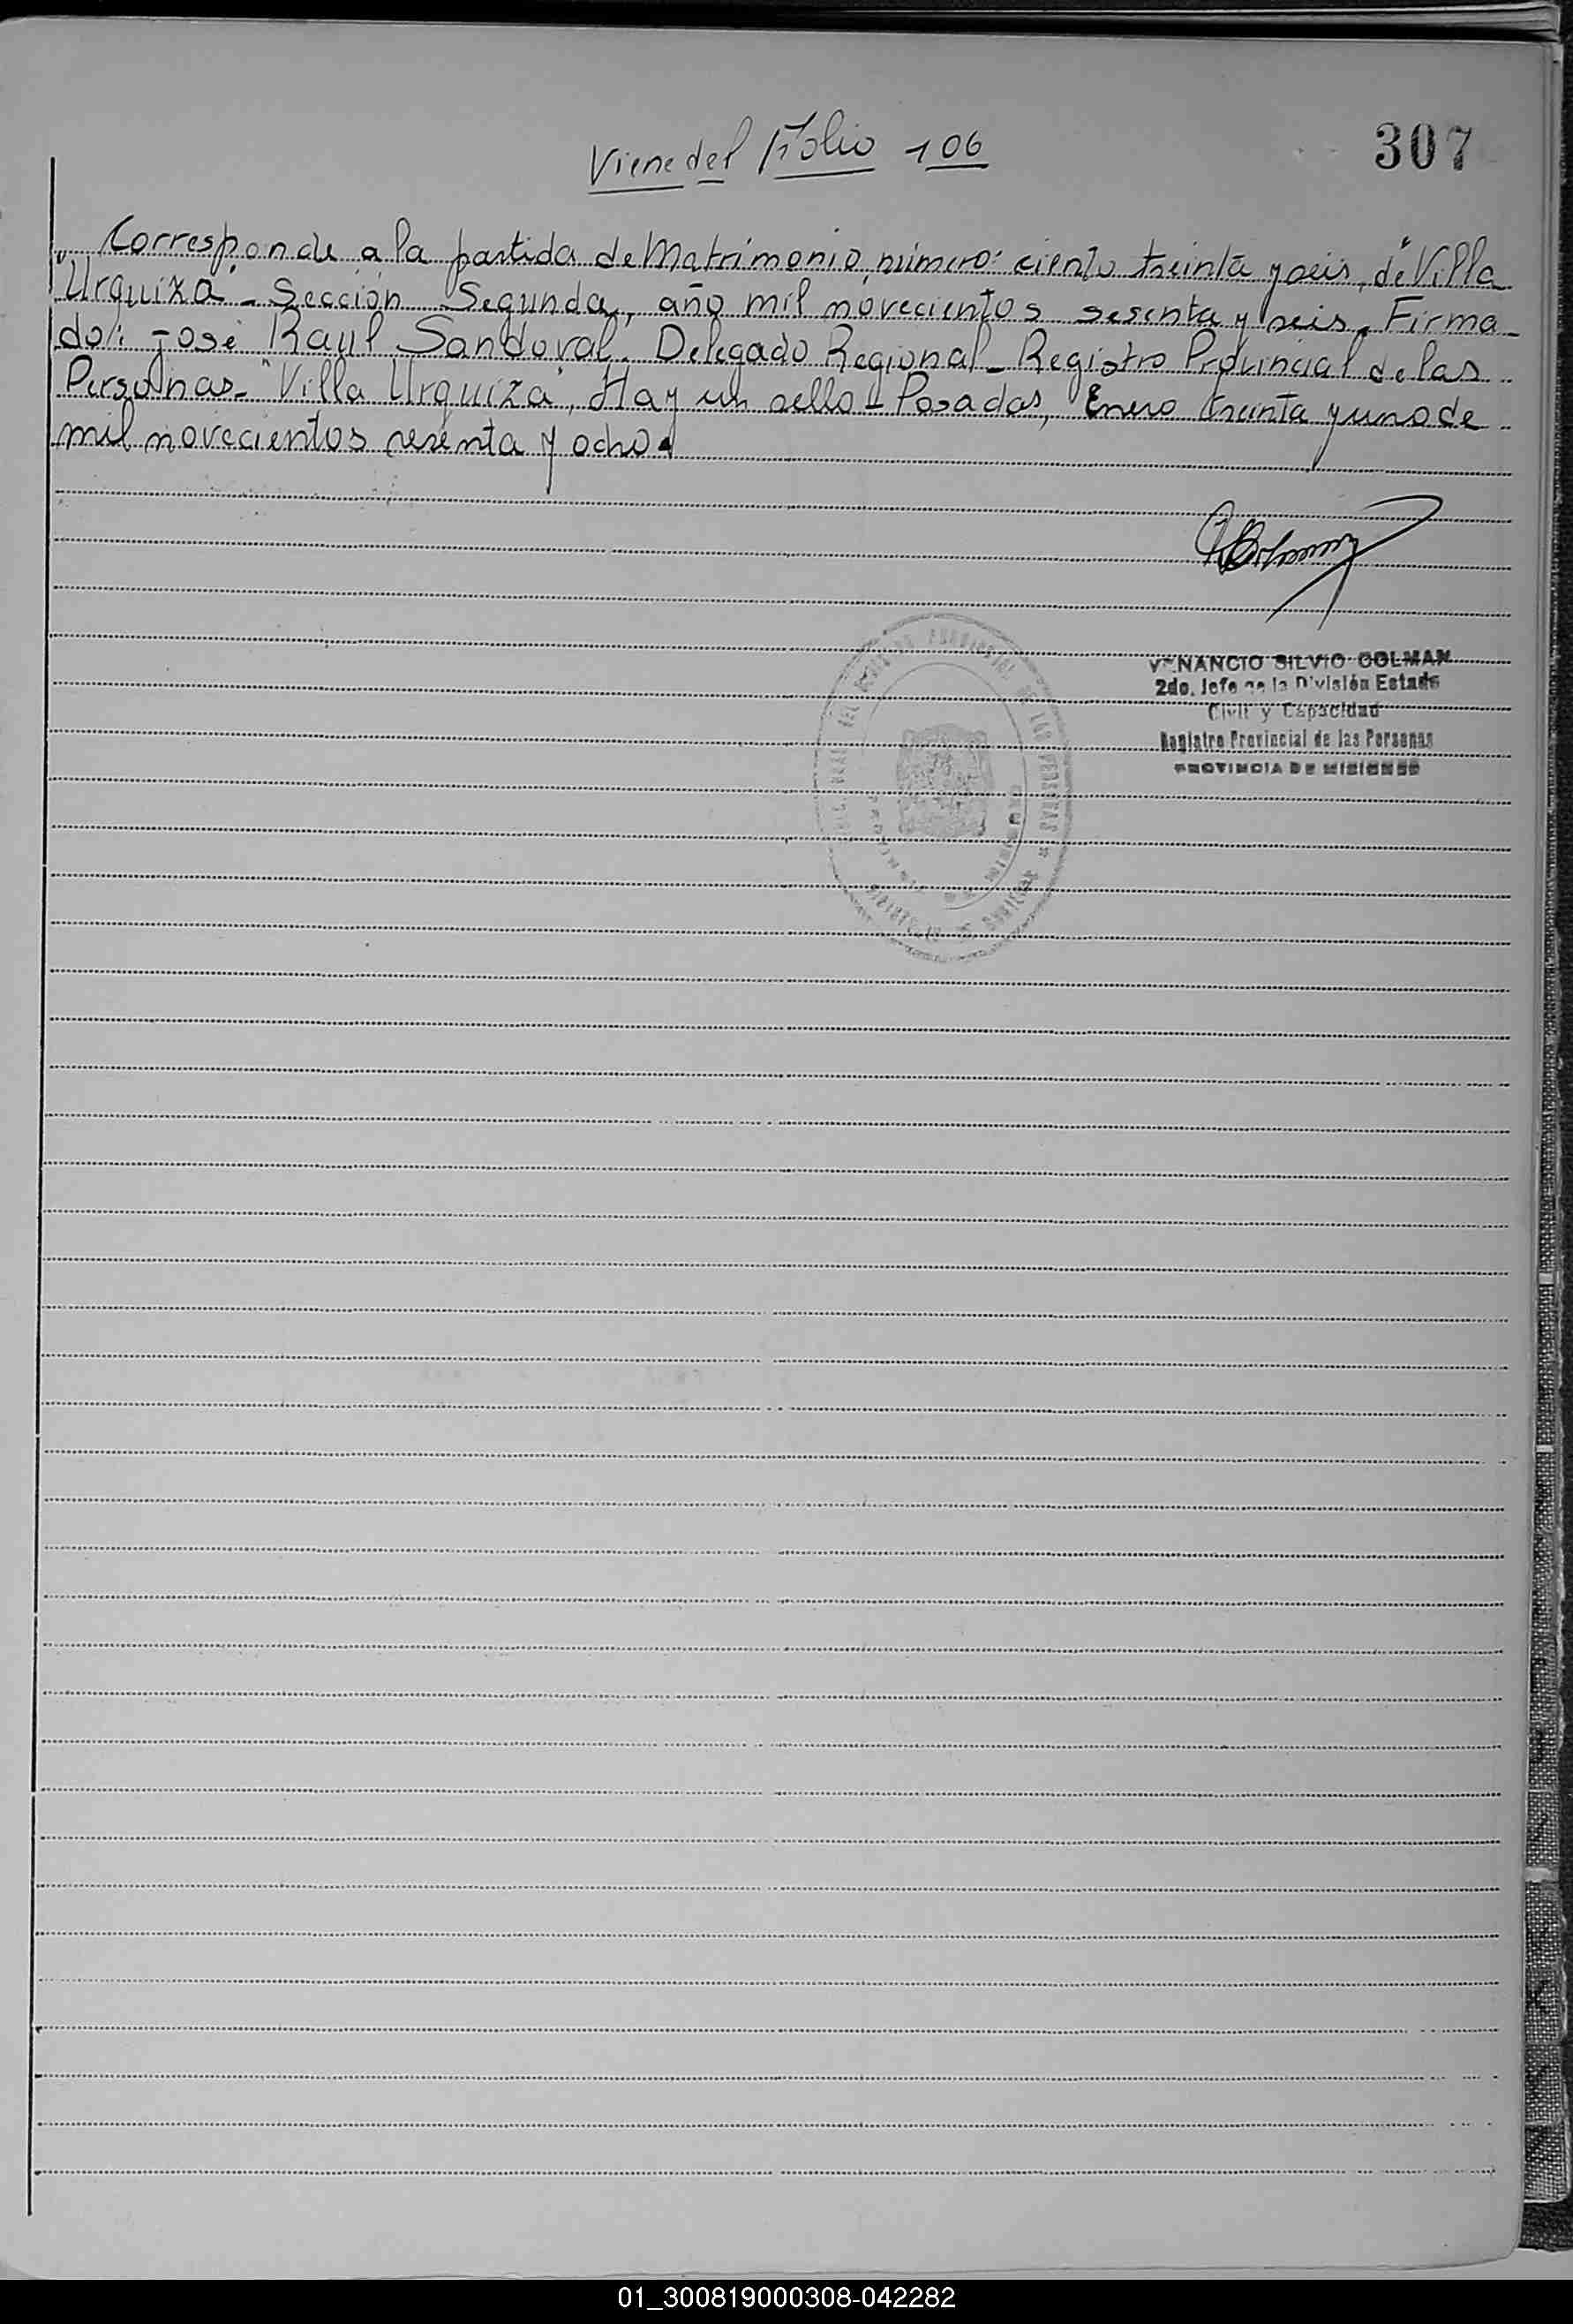 307
Viene del Folio 106
Corresponde a la partida de Matrimonio número: ciento treinta y seis, de "Villa
Urquiza" - Sección Segunda, año mil novecientos sesenta y seis. Firma-
do: José Raul Sandoval. Delegado Regional - Registro Provincial de las
Personas - "Villa Urquiza", Hay un sello - Posadas, Enero treinta y uno de
mil novecientos sesenta y ocho.
VENANCIO SILVIO COLMAN
2do. Jefe de la División Estado
Civil y Capacidad
Registro Provincial de las Personas
PROVINCIA DE MISIONES
PROVINCIAL DE LAS PERSONAS
01_300819000308-042282